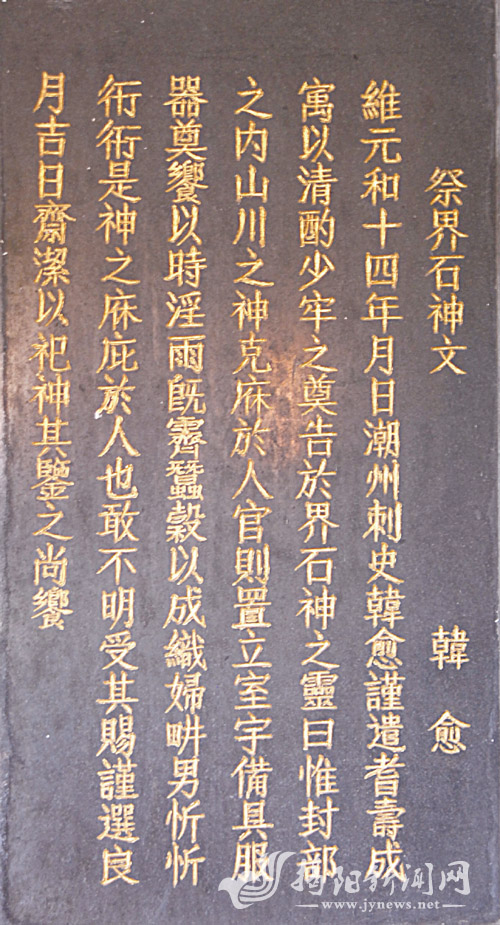 祭界石神文　韓愈
維元和十四年月日潮州刺史韓愈謹遣耆壽成
寓以清酌少牢之奠告於界石神之靈曰惟封部
之内山川之神克庥於人官則置立室宇備具服
器奠饗以時淫雨既霽蠶穀以成織婦耕男忻忻
衎衎是神之庥庇於人也敢不明受其賜謹選良
月吉日齋潔以祀神其鑒之尚饗
揭阳新闻网
www.jynews.net